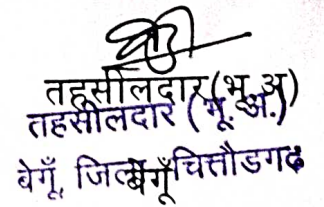 तहसीलदार (भू. अ)
तहसीलदार (भू. अ.)
बेगूँ, जिला बेगूँ चित्तौडगढ